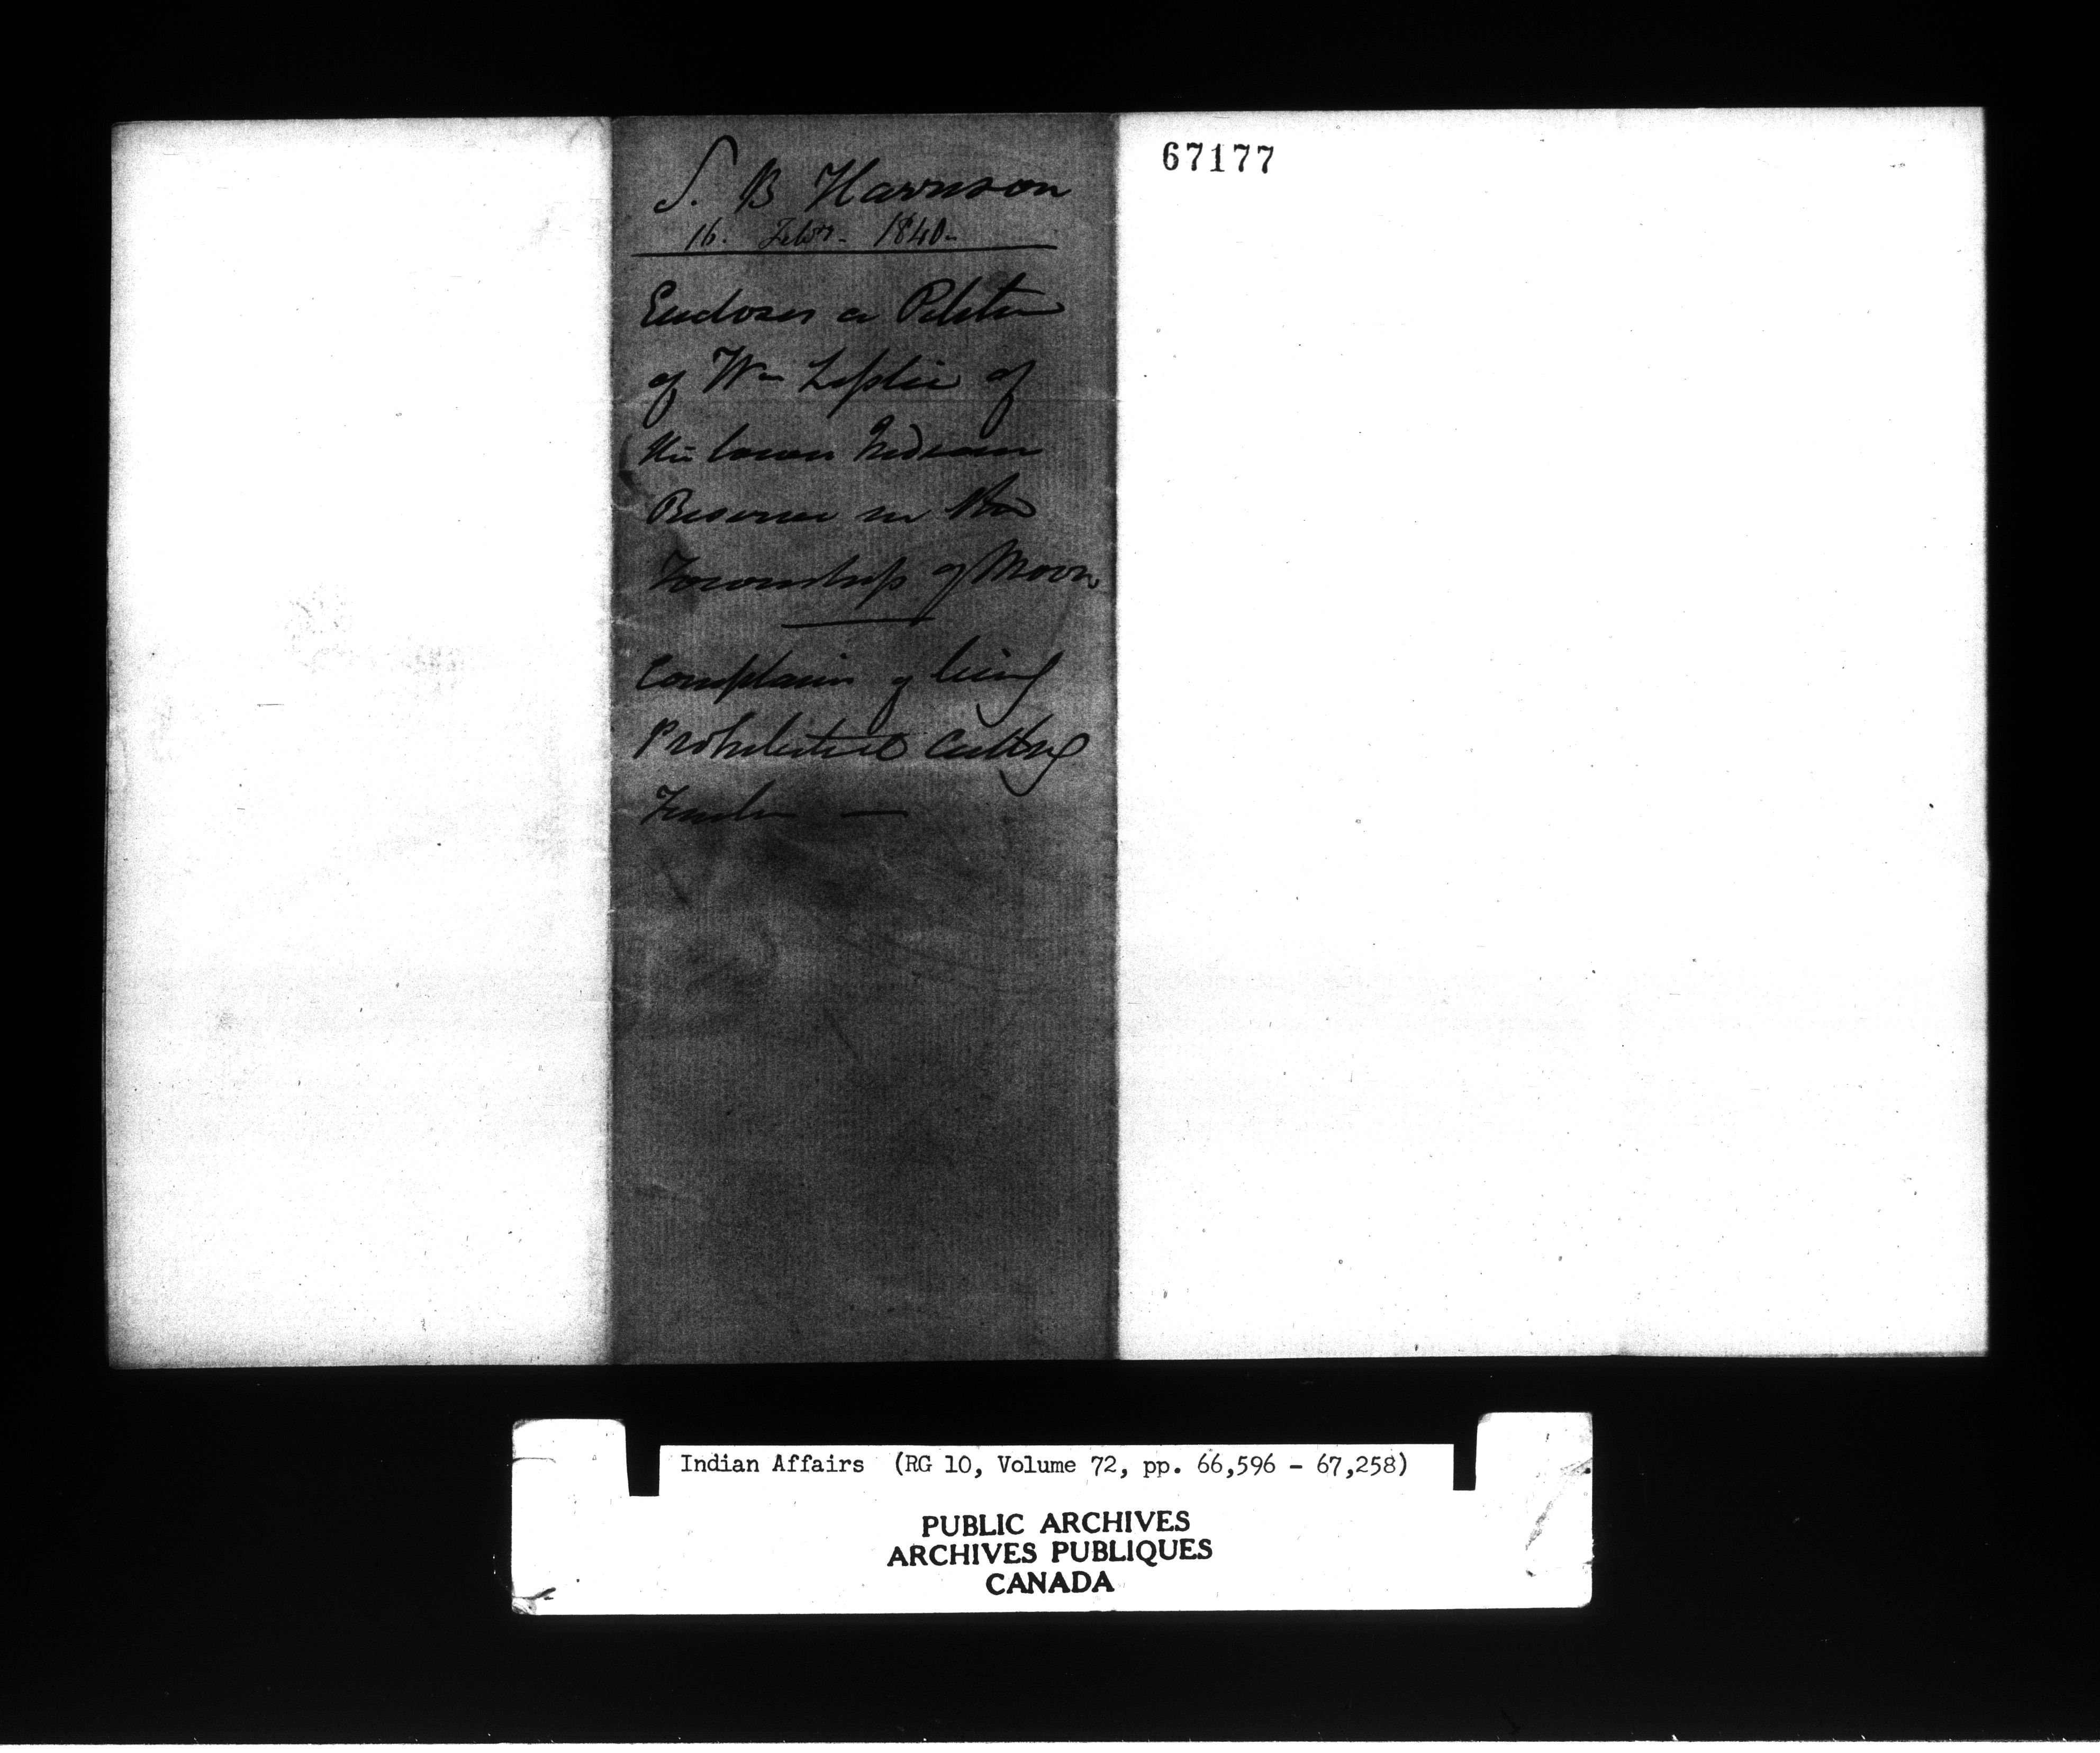 S. B Harrison
16. Febr. 1840.
Encloses a Petition
of Wm Leslie of
the lower Indian
Reserve in the
Township of Moore
Complains of being
Prohibited Cutting
Timber —
67177
Indian Affairs (RG 10, Volume 72, pp. 66,596 - 67,258)
PUBLIC ARCHIVES
ARCHIVES PUBLIQUES
CANADA